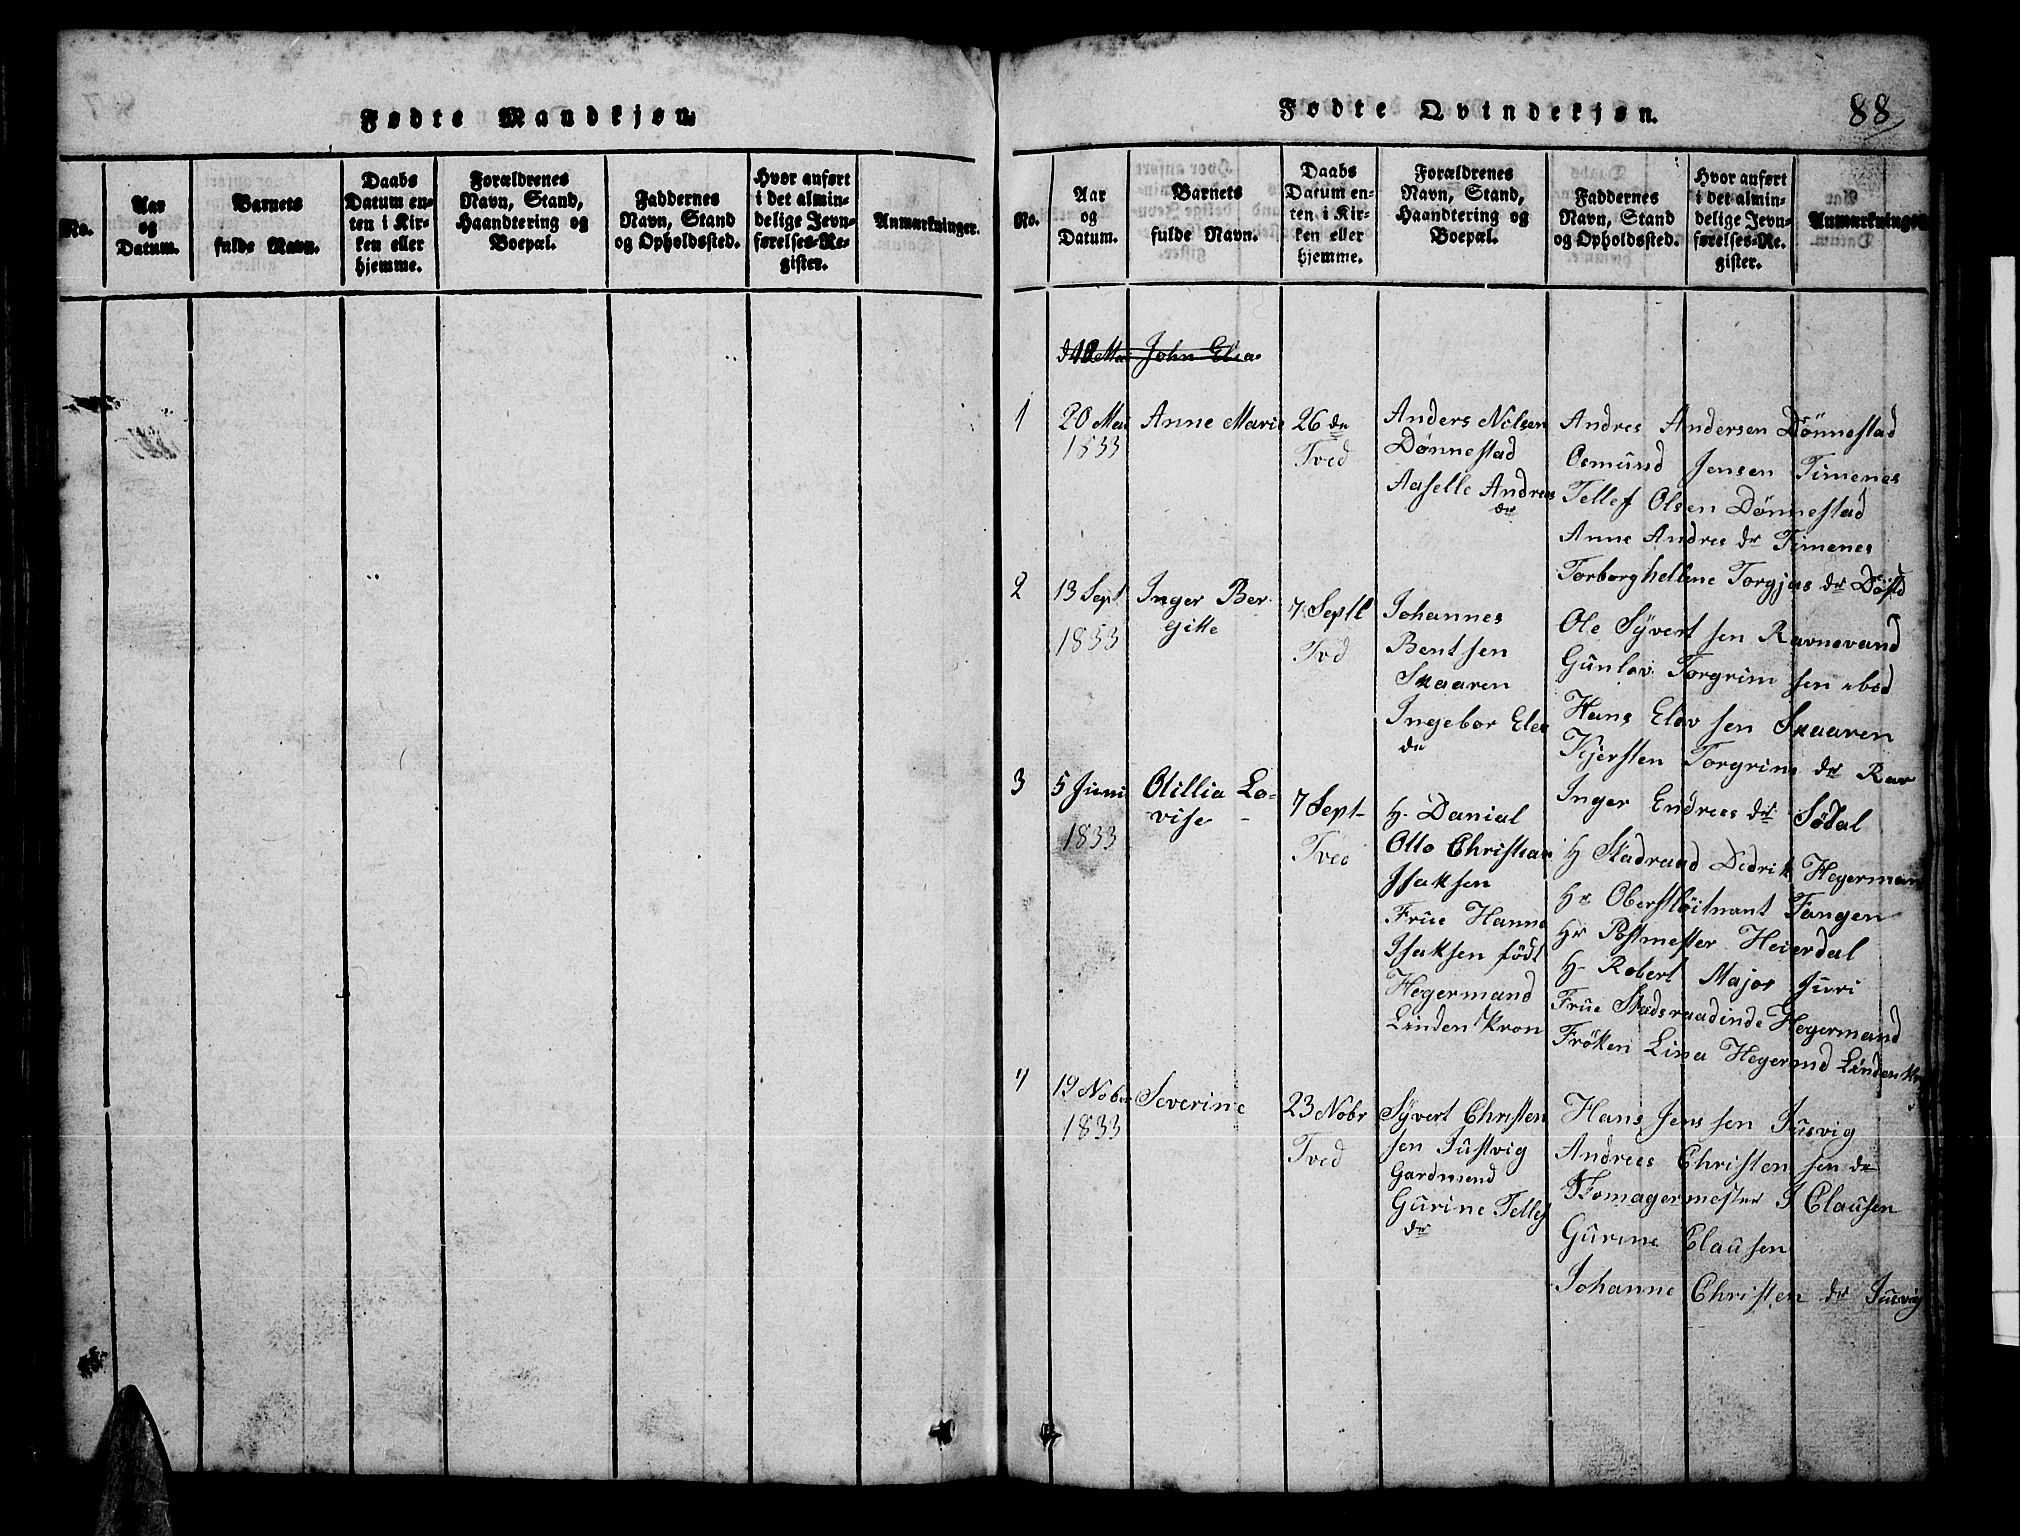 Fødte Mandkjøn.
No.
Aar og Datum.
Barnets fulde Navn.
Daabs Datum enten i Kirken eller hjemme.
Forældrenes Navn, Stand, Haandtering og Boepæl.
Faddernes Navn, Stand og Opholdssted.
Hvor anført i det almindelige Jevnførelses-Register.
Anmærkninger.
Fødte Qvindekjøn.
88
No.
Aar og Datum.
Barnets fulde Navn.
Daabs Datum enten i Kirken eller hjemme.
Forældrenes Navn, Stand, Haandtering og Boepæl.
Faddernes Navn, Stand og Opholdssted.
Hvor anført i det almindelige Jevnførelses-Re.gister.
Anmærkninger
John Elia
1
20 Mai
1833
Anne Marie
26 de
Tved
Anders Nilsen
Dønnestad
Aaselle Andres
dr
Andres Andersen Dønnestad
Osmund Jensen Timenes
Tellef Olsen Dønnestad
Anne Andres dr Timenes
Torborghellene Torgjus dr
2
13 Sept
1833
Inger Ber
gitte
7 Septb
Tved
Johannes
Bentsen
Skaaren
Ingebor
de
Ole Syvert sen Ravnevand
Gunlov Torgrim sen ibd
Hans Elov sen Skaaren
Kjersten Torgrim dr Rav
Inger Endrees dr Södal
3
5 Juni
1833
Otillia Lo-
vise
7 Sept
Tved
H. Danial
Otto Christian
Isaksen
Frue Hanne
Isaksen født
Hegermand
Linden Kron
H Stadraad Dedrik Hegerman
Hr Oberstløitnant Fangen
Hr Postmester Heierdal
H. Robert Major Juri
Frue Stadsraadinde Hegermand
Frøken Lina Hegermd Linden Kr
4
19 Nobr
1833
Severine
23 Nobr
Tved
Syvert Christen
sen Justvig
Gardmend
Gurine Tellef
dr
Hans Jens sen Jusvig
Andrees Christen sen de
Skomagermester J Clausen
Gurine Clausen
Johanne Christen dr Jusvig